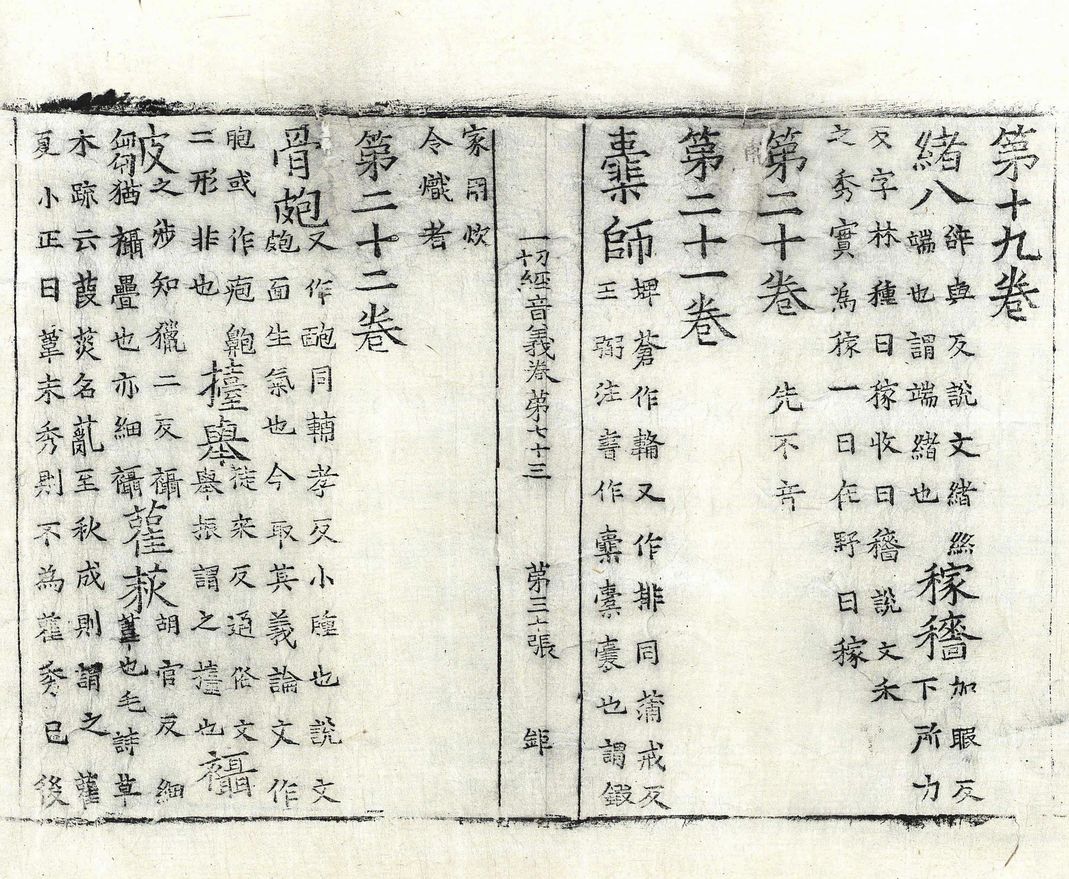 第十九卷
緒八辝與反說文緒絲端也謂端緒也稼穡加暇反下所力
反字林種曰稼收曰穡說文禾之秀實為稼一曰在野曰稼
第二十卷 先不音
第二十一卷
橐師埤蒼作韛又作排同蒲戒反王弼注書作橐囊也謂鍛
一切經音義卷第七十三 第三十張 鉅
家用炊令熾者
第二十二卷
骨皰又作皰同輔孝反小腫也說文皰面生氣也今取其義論文作
胞或作疱皰二形非也擡舉徒來反通俗文舉振謂之擡也襵
皮之涉知獵二反襵細襵猶襵疊也亦細襵雚荻胡官反細葦也毛詩草
木疏云葭菼名薍至秋成則謂之雚
夏小正曰葦未秀則不為雚秀已後